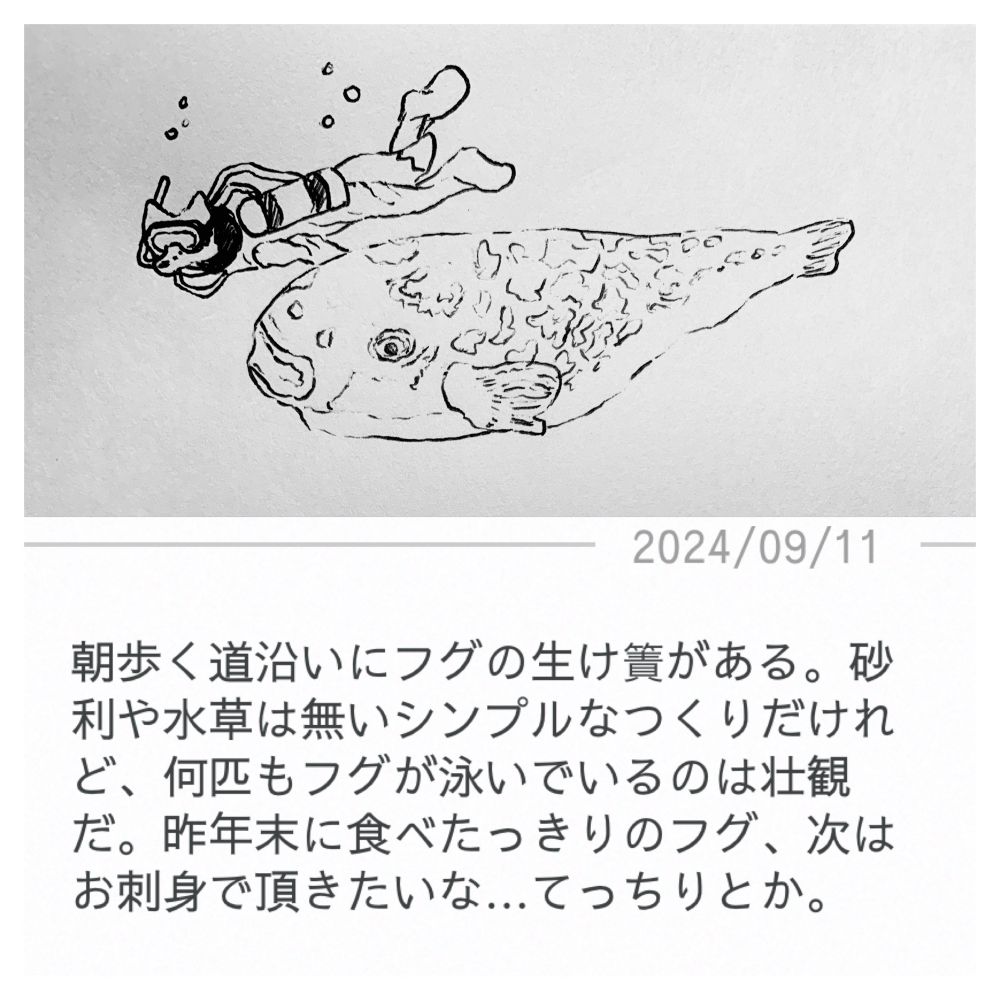 2024/09/11
朝歩く道沿いにフグの生け簀がある。砂
利や水草は無いシンプルなつくりだけれ
ど、何匹もフグが泳いでいるのは壮観
だ。昨年末に食べたっきりのフグ、次は
お刺身で頂きたいな…てっちりとか。